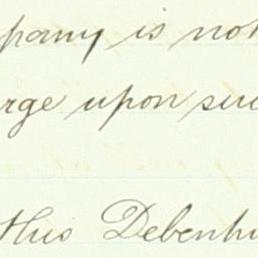 pany is not
rge upon suc
this Debentu